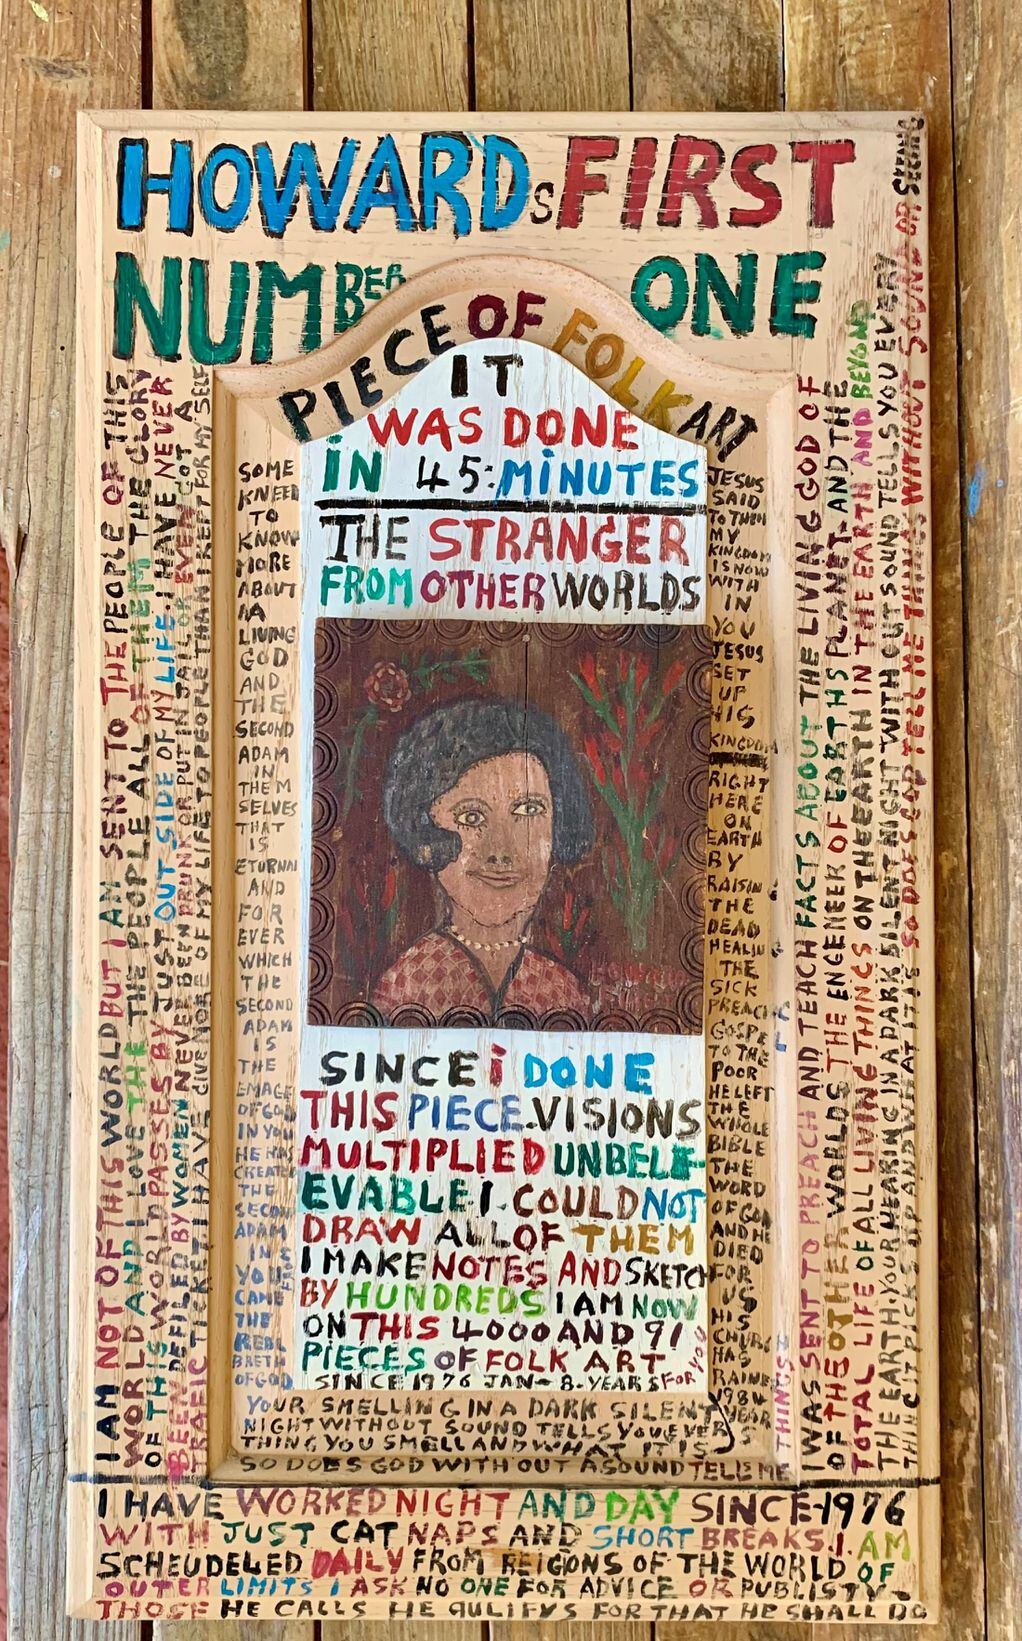 HOWARDs FIRST
NUMBER ONE
PIECE OF FOLK ART
IT
WAS DONE
IN 45: MINUTES
THE STRANGER
FROM OTHER WORLDS
SINCE i DONE
THIS PIECE. VISIONS
MULTIPLIED UNBELE-
EVABLE I. COULD NOT
DRAW ALL OF THEM
I MAKE NOTES AND SKETCH
BY HUNDREDS I AM NOW
ON THIS 4000 AND 91
PIECES OF FOLK ART
SINCE 1976 JAN- 8-YEARS FOR YOU
SOME
KNEED
TO
KNOW
MORE
ABOUT
AA
LIVING
GOD
AND
THE
SECOND
ADAM
IN
THEM
SELVES
THAT
IS
ETURNAL
AND
FOR
EVER
WHICH
THE
SECOND
ADAM
IS
THE
EMAGE
OF GOD
IN YOU
HE HAS
CREATED
THE
SECOND
ADAM
IN
YOU
FROM
CAME
THE
REAL
BRETH
OF GOD
JESUS
SAID
TO THEM
MY
KINGDOM
IS NOW
WITH
IN
YOU
JESUS
SET
UP
HIS
KINGDOM
RIGHT
HERE
ON
EARTH
BY
RAISIN
THE
DEAD
HEALIN
THE
SICK
PREACH
GOSPEL
TO THE
POOR
HE LEFT
THE
WHOLE
BIBLE
THE
WORD
OF GOD
AND HE
DIED
FOR
US
HIS
CHURCH
HAS
RAINE
1984
YEARS
YOUR SMELLING IN A DARK SILENT
NIGHT WITHOUT SOUND TELLS YOU EVERY
THING YOU SMELL AND WHAT IT IS
SO DOES GOD WITH OUT A SOUND TELL ME
THINGS
I AM NOT OF THIS WORLD BUT I AM SENT TO THE PEOPLE OF THIS
WORLD AND I LOVE THE THE PEOPLE ALL OF THEM THE GLORY
OF THIS WORLD PASSES BY JUST OUT SIDE OF MY LIFE I HAVE NEVER
BEEN DEFILED BY WOMEN NEVER BEEN DRUNK OR PUT IN JAIL OR EVEN GOT A
TRAFIC TICKET. I HAVE GIVE MORE OF MY LIFE TO PEOPLE THAN I KEPT FOR MY SELF
I WAS SENT TO PREACH AND TEACH FACTS ABOUT THE LIVING GOD OF
OF THE OTHER WORLDS THE ENGENEER OF EARTHS PLANET AND THE
TOTAL LIFE OF ALL LIVING THINGS ON THE EARTH IN THE EARTH AND BEYOND
THE EARTH, YOUR HEARING IN A DARK SILENT NIGHT WITH OUT SOUND TELLS YOU EVERY
THING IT PICKS UP AND WHAT IT IS SO DOES GOD TELL ME THINGS WITHOUT SOUND OR SEEING
I HAVE WORKED NIGHT AND DAY SINCE-1976
WITH JUST CAT NAPS AND SHORT BREAKS. I. AM
SCHEUDELED DAILY FROM REIGIONS OF THE WORLD OF
OUTER LIMITS I ASK NO ONE FOR ADVICE OR PUBLISTY-
THOSE HE CALLS HE QULIFYS FOR THAT HE SHALL DO